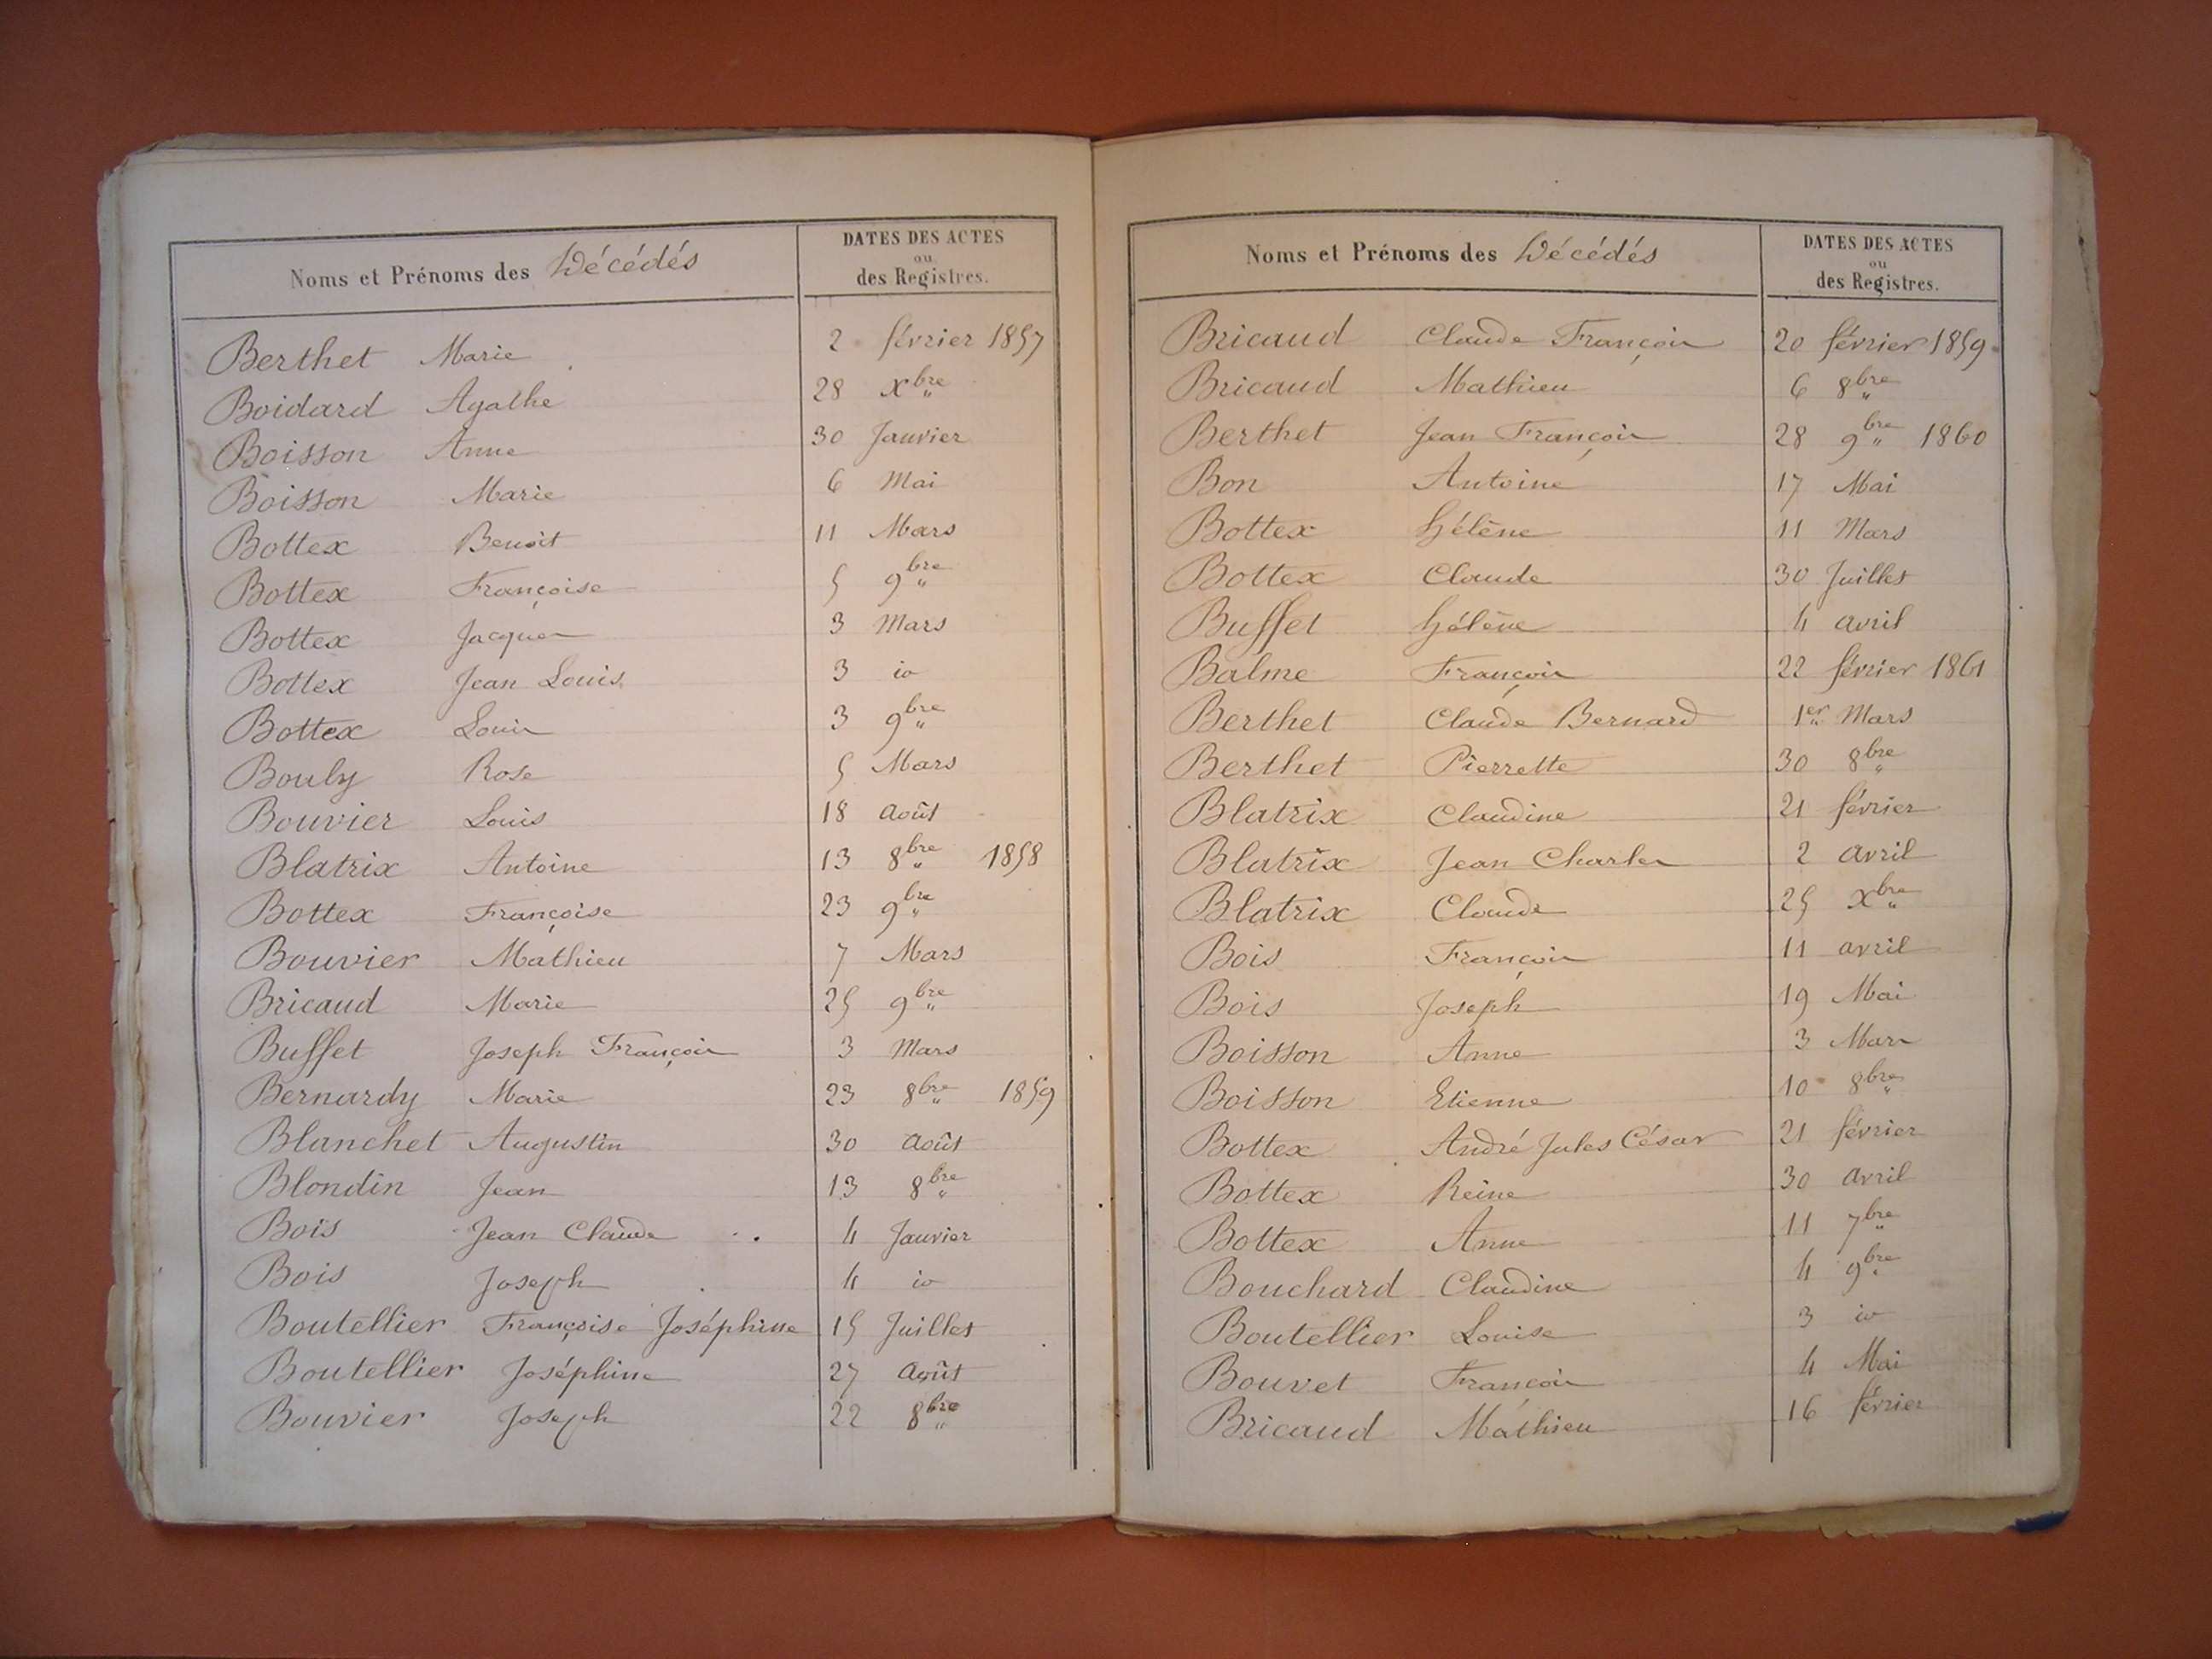 Noms et Prénoms des Décédés
DATES DES ACTES
ou
des Registres.
Berthet Marie 2 février 1857
Boidard Agathe 28 Xbre
Boisson Anne 30 Janvier
Boisson Marie 6 Mai
Bottex Benoit 11 Mars
Bottex Françoise 5 9bre
Bottex Jacques 3 Mars
Bottex Jean Louis 3 io
Bottex Louis 3 9bre
Bouly Rose 5 Mars
Bouvier Louis 18 Août
Blatrix Antoine 13 8bre 1858
Bottex Françoise 23 9bre
Bouvier Mathieu 7 Mars
Bricaud Marie 25 9bre
Buffet Joseph François 3 Mars
Bernardy Marie 23 8bre 1859
Blanchet Augustin 30 Août
Blondin Jean 13 8bre
Bois Jean Claude 4 Janvier
Bois Joseph 4 io
Boutellier Françoise Joséphine 15 Juillet
Boutellier Joséphine 27 Août
Bouvier Joseph 22 8bre
Noms et Prénoms des Décédés
DATES DES ACTES
ou
des Registres.
Bricaud Claude François 20 février 1859
Bricaud Mathieu 6 8bre
Berthet Jean François 28 9bre 1860
Bon Antoine 17 Mai
Bottex Hélène 11 Mars
Bottex Claude 30 Juillet
Buffet Hélène 4 avril
Balme François 22 février 1861
Berthet Claude Bernard 1er Mars
Berthet Pierrette 30 8bre
Blatrix Claudine 21 février
Blatrix Jean Charles 2 avril
Blatrix Claude 25 Xbre
Bois François 11 avril
Bois Joseph 19 Mai
Boisson Anne 3 Mars
Boisson Etienne 10 8bre
Bottex André Jules César 21 février
Bottex Reine 30 avril
Bottex Anne 11 7bre
Bouchard Claudine 4 9bre
Boutellier Louise 3 io
Bouvet François 4 Mai
Bricaud Mathieu 16 février